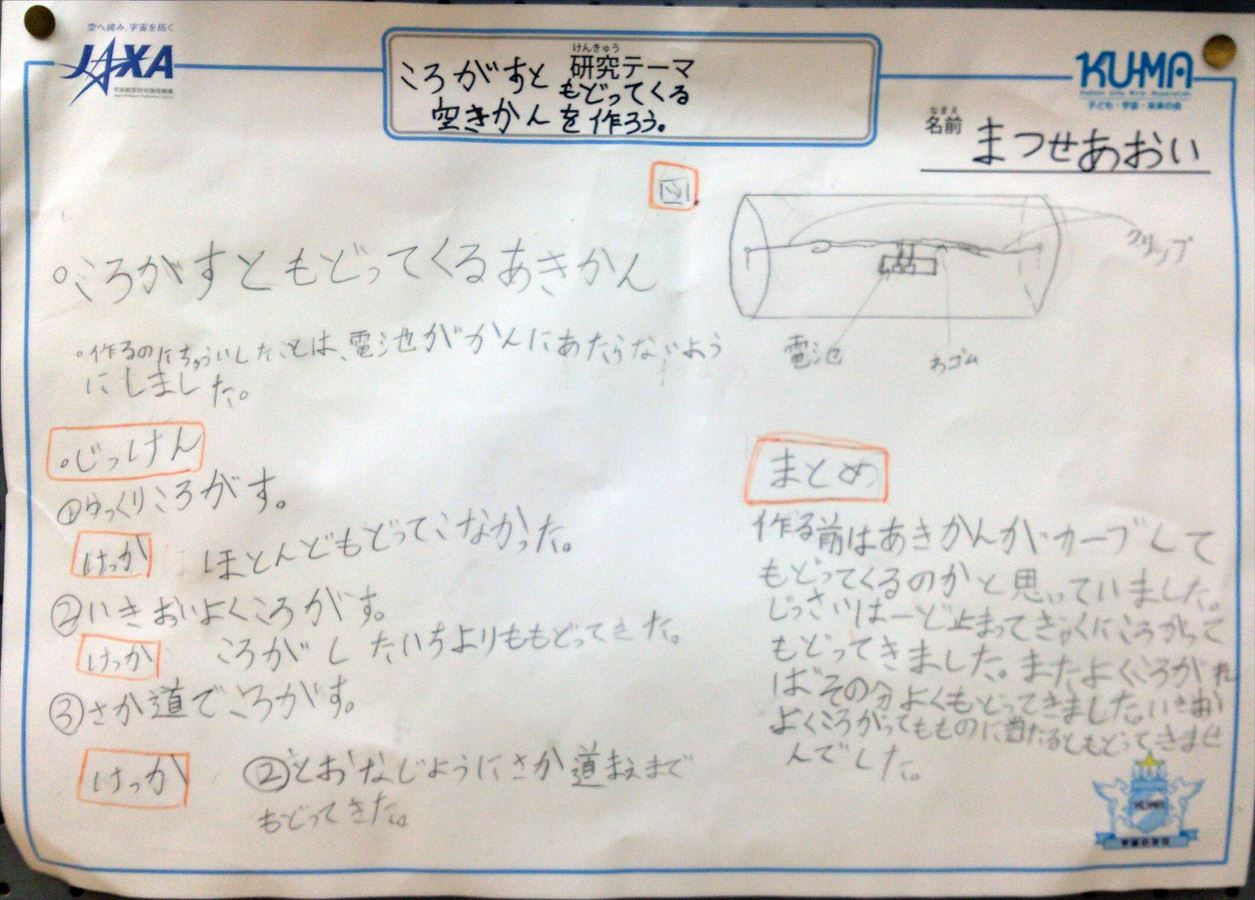 空へ挑み、宇宙を拓く
JAXA
けんきゅう
研究テーマ
ころがすともどってくる
空きかんを作ろう。
KU-MA
子ども・宇宙・未来の会
なまえ
名前 まつせあおい
図
クリップ
電池
わゴム
ころがすともどってくるあきかん
・作るのにちゅういしたことは、電池がかんにあたらないよう
にしました。
・じっけん
①ゆっくりころがす。
けっか ほとんどもどってこなかった。
②いきおいよくころがす。
けっか ころがしたいちよりももどってきた。
③さか道でころがす。
けっか ②とおなじようにさか道まえまで
もどってきた。
まとめ
作る前はあきかんがカーブして
もどってくるのかと思っていました。
じっさいは一ど止まってぎゃくにころがって
もどってきました。またよくころがれ
ばその分よくもどってきました。いきおい
よくころがってもものに当たるともどってきませ
んでした。
KUMA
宇宙の学校